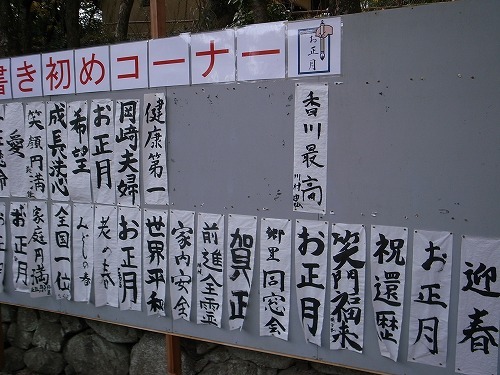 書き初めコーナー
お正月
健康第一
岡崎夫婦
お正月
希望
成長決心
笑顔円満
愛
香川最高
迎春
お正月
祝還歴
笑門福来
お正月
郷里同窓会
賀正
前進全霊
家内安全
世界平和
お正月
全国一位
家庭円満
お正月